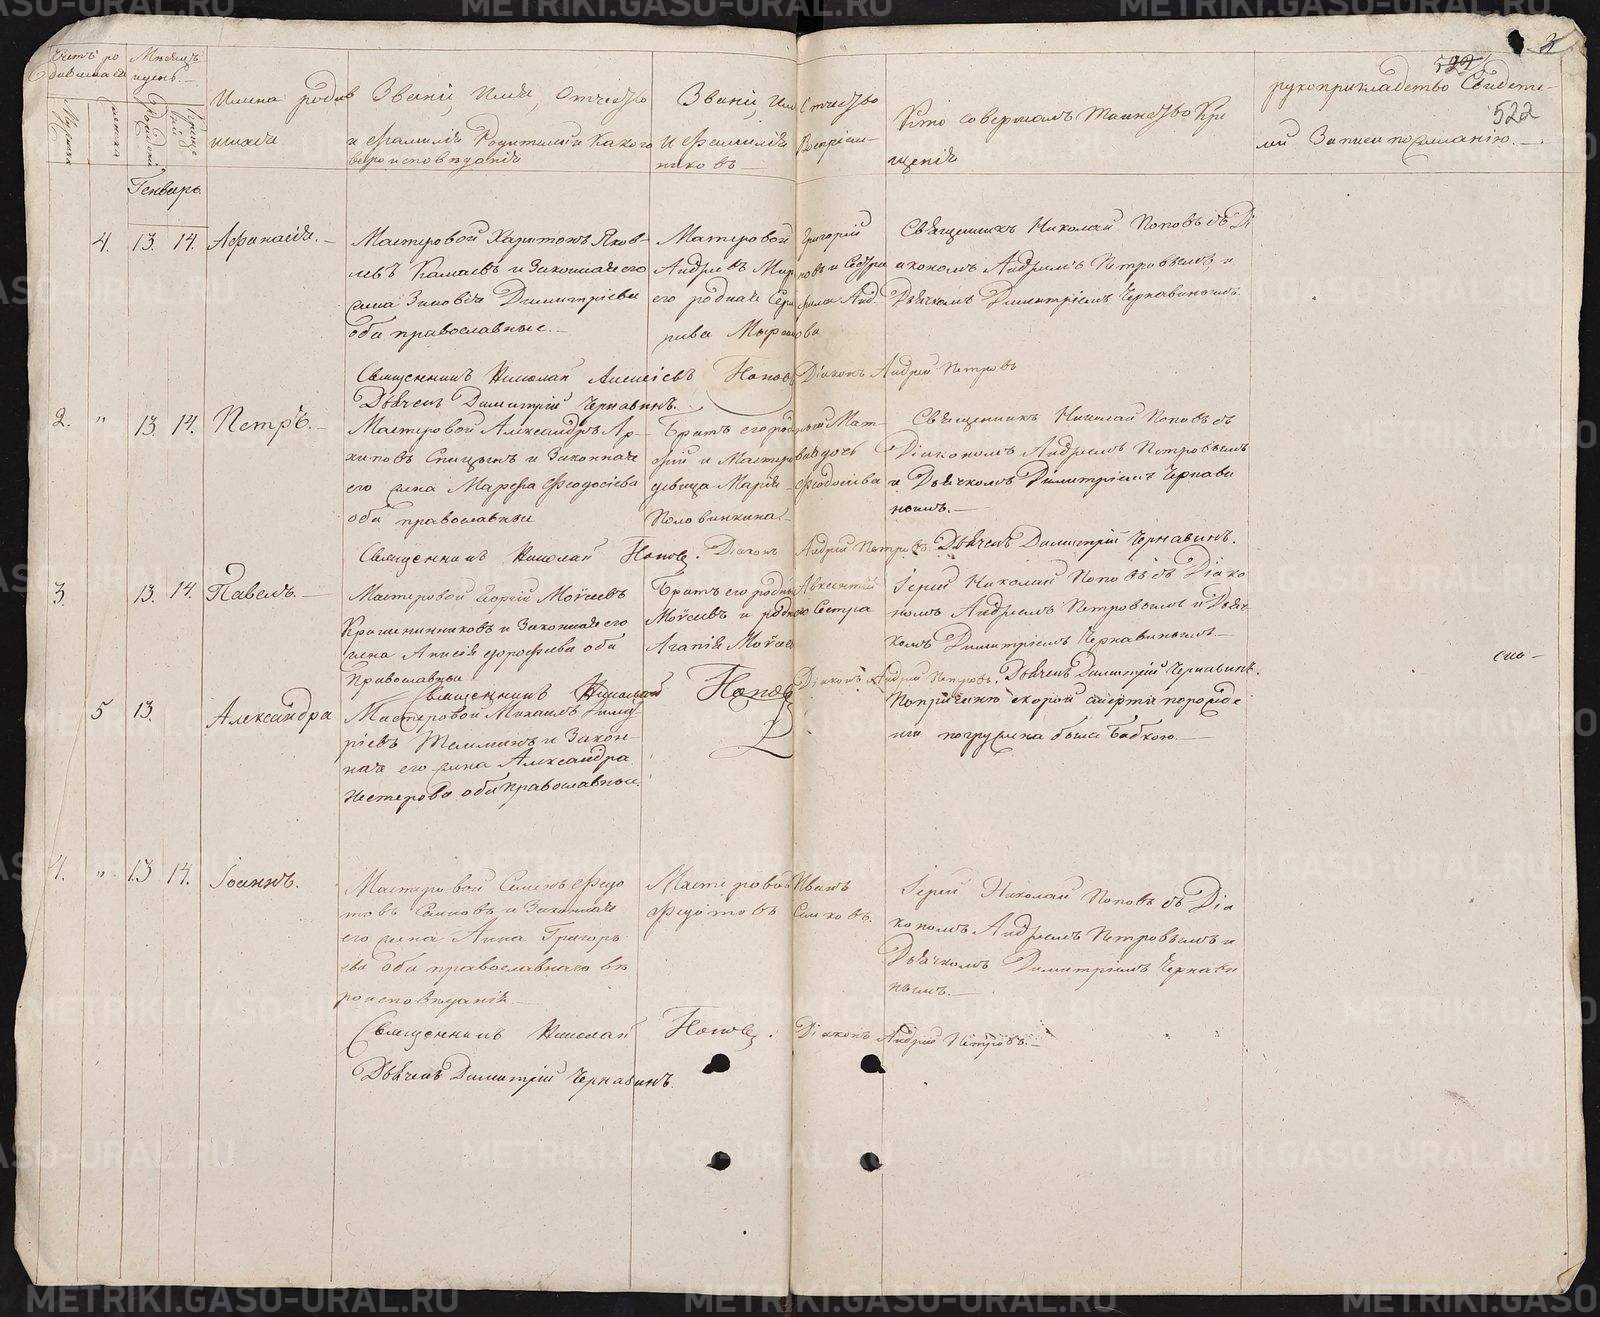 Счетъ ро
дившихся
Мѣсяцъ
и день.
Мужеска
женска
Рожденія
Крещенія
Имена родив
шихся
Званіе, Имя, Отчество
и Фамилія Родителей и Какого
вероисповѣданія
Званіе, Имя Отчество
и Фамилія Воспріем-
никовъ
Кто совершалъ Таинство Кре
щенія
рукоприкладство Свидете-
лей Записи по желанію.
522
3
522
Генварь
4. 13. 14. Афанасія.
Мастеровой Харитонъ Яков-
левъ Камаевъ и Законная его
жена Зиновія Димитріева
оба православные.
Мастеровой Григорій
Андреевъ и Сестра
его родная Анд-
Священникъ Николай Поповъ съ Ді
акономъ Андреемъ Петровымъ, и
Дьячкомъ Димитріемъ Чернавинымъ.
Священникъ Николай Алексіевъ Поповъ Діаконъ Андрей Петровъ
Дьячекъ Димитрій Чернавинъ.
2. " 13. 14. Петръ.
Мастеровой Александръ Ар-
хиповъ Спицынъ и Законная
его жена Марфа Феодосіева
оба православные
Братъ его родный Мат-
фей и Мастероваго дочь
девица Марія Феодосіева
Половинкина.
Священникъ Николай Поповъ съ
Діакономъ Андреемъ Петровымъ
и Дьячкомъ Димитріемъ Чернави
нымъ.
Священникъ Николай Поповъ. Діаконъ Андрей Петровъ. Дьячекъ Димитрій Чернавинъ.
3. 13. 14. Павелъ.
Мастеровой Георгій Моѵсеевъ
Крашенинниковъ и Законная его
жена Анисія Дорофеева оба
Православные
Братъ его родный Авксентій
Моѵсеевъ и родная Сестра
Агапія Моѵсеева
Іерей Николай Поповъ съ Діако
номъ Андреемъ Петровымъ и Дьяч
комъ Димитріемъ Чернавинымъ.
Священникъ Николай Поповъ Діаконъ Андрей Петровъ. Дьячекъ Димитрій Чернавинъ.
5 13. Александра
Мастеровой Михаилъ Димит
ріевъ и Закон-
ная его жена Александра
Нестерова оба Православные.
По причинѣ скорой смерти по рожде
ніи погружена была Бабкою.
4. " 13 14. Іоаннъ.
Мастеровой Семенъ Федо
товъ Санковъ и Законная
его жена Анна Григорь
ева оба православнаго вѣ
роисповѣданія
Мастеровой Иванъ
Федотовъ Санковъ.
Іерей Николай Поповъ съ Діа
кономъ Андреемъ Петровымъ и
Дьячкомъ Димитріемъ Чернави
нымъ.
Священникъ Николай Поповъ. Діаконъ Андрей Петровъ.
Дьячекъ Димитрій Чернавинъ.
METRIKI.GASO-URAL.RU